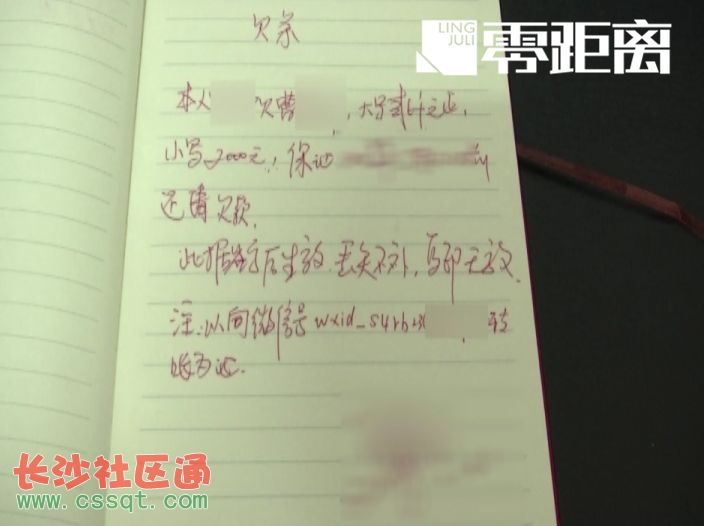 LING
JULI
零距离
欠条
本人 欠曹 ,大写贰仟元正,
小写2000元,保证
还清欠款.
此据签字后生效,丢失不补,复印无效.
注:以向微信号wxid_s4rb 转
账为证.
长沙社区通
www.cssqt.com